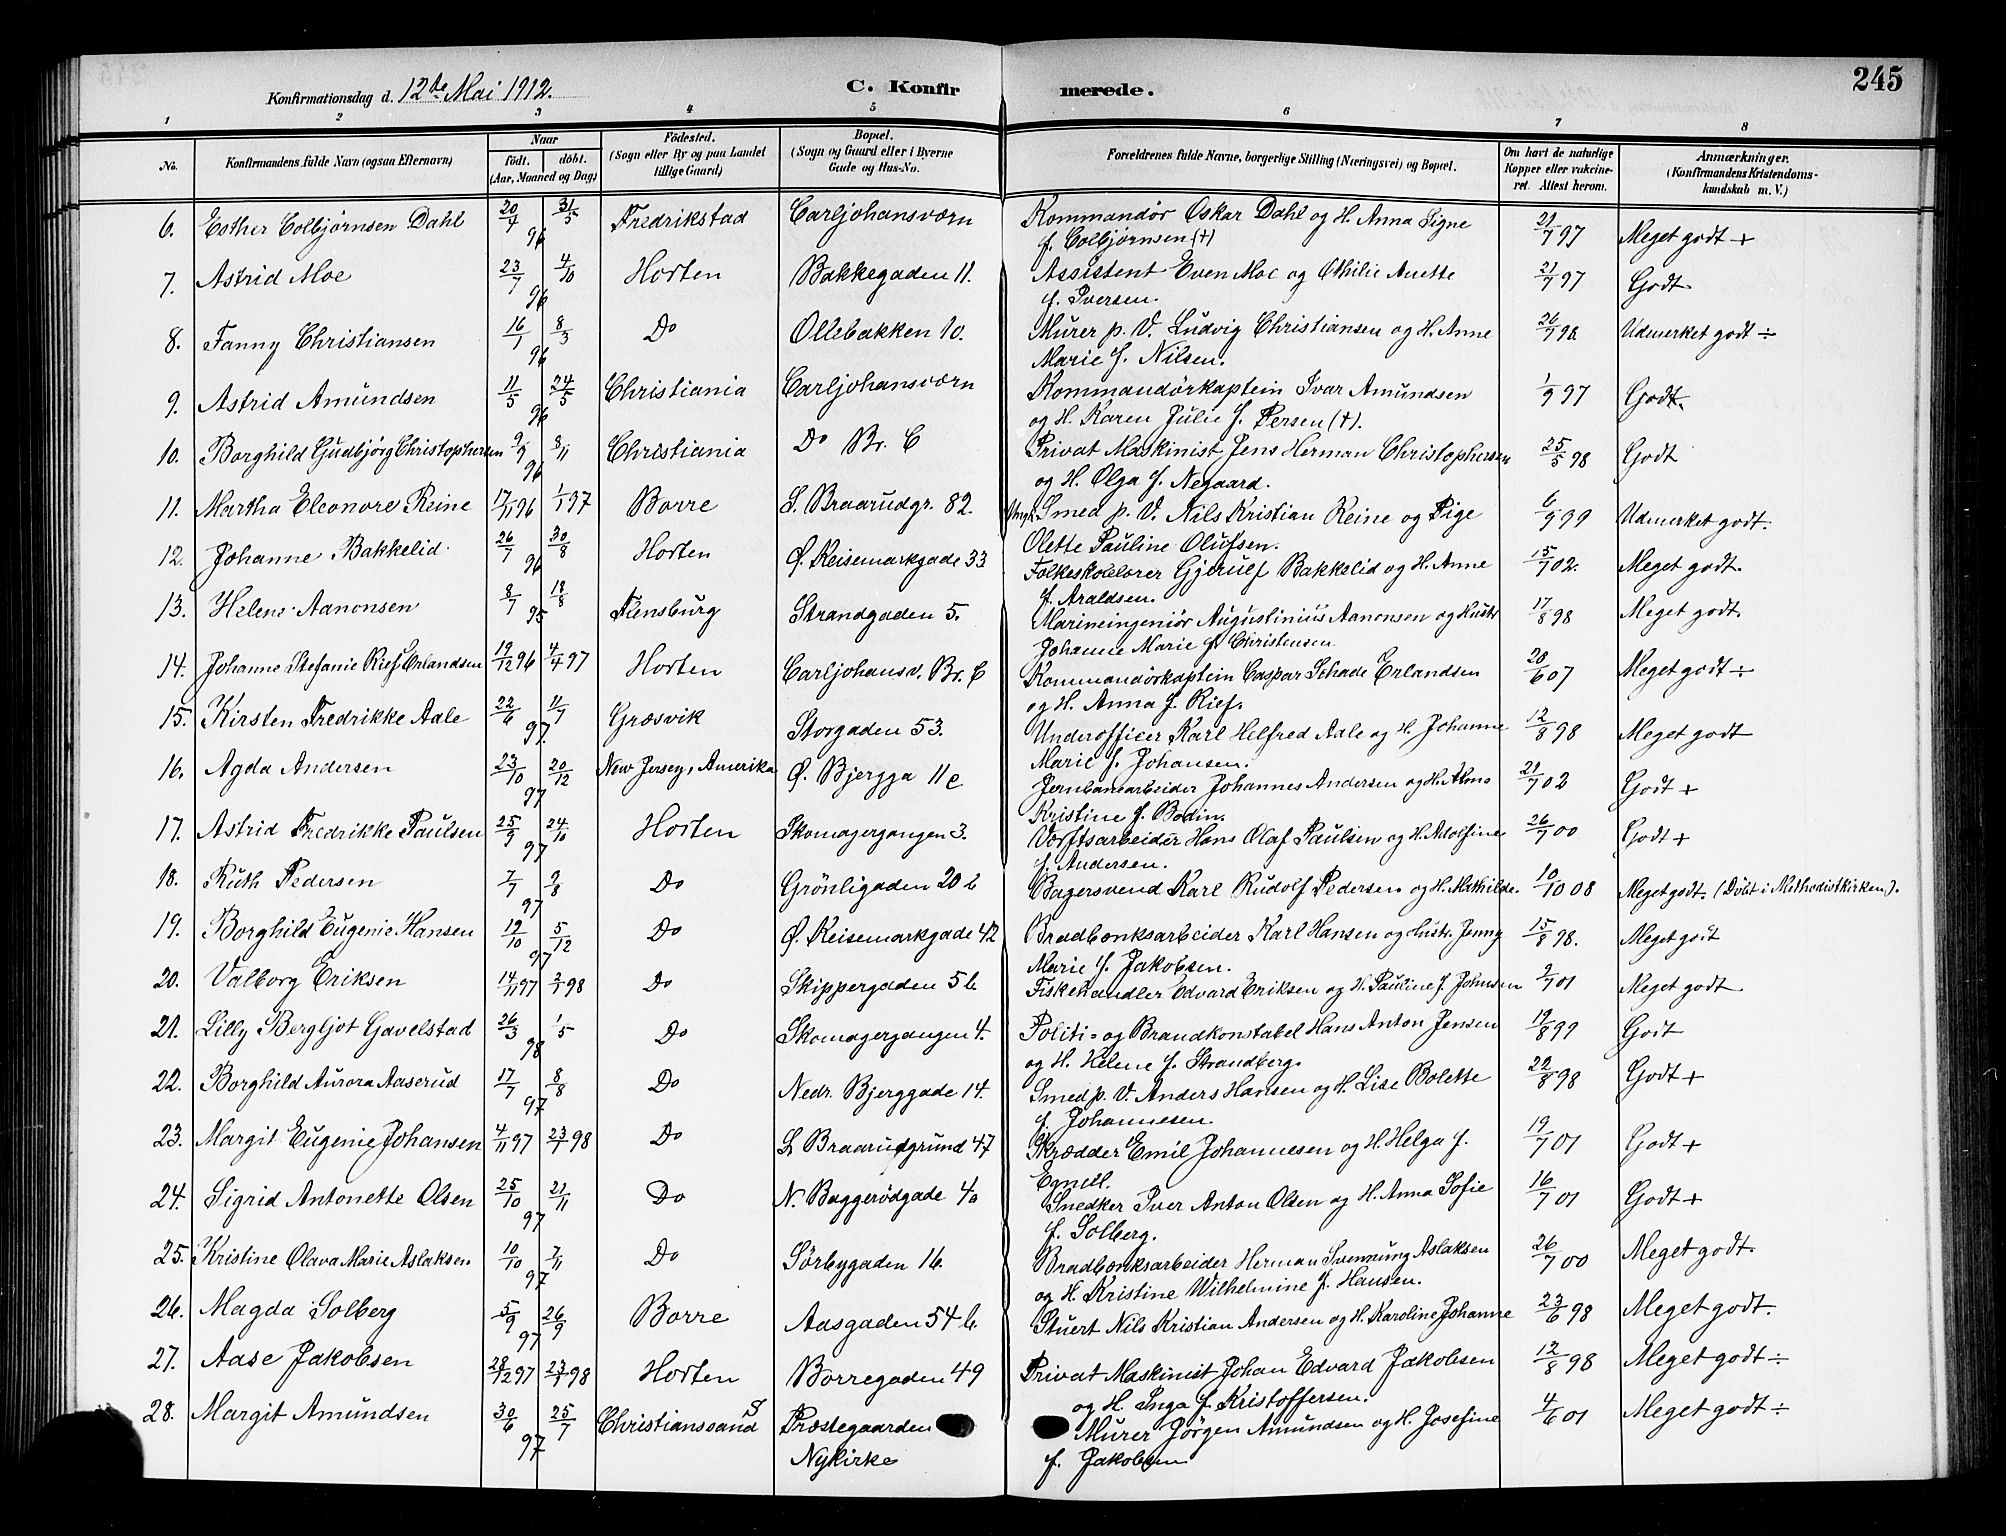 245
Konfirmationsdag d. 12te Mai 1912.
C. Konfirmerede.
1 2 3 4 5 6 7 8
No. Konfirmandens fulde Navn (ogsaa Efternavn) Naar født. døbt. (Aar, Maaned og Dag) Fødested. (Sogn eller By og paa Landet tillige Gaard) Bopæl. (Sogn og Gaard eller i Byerne Gade og Hus-No. Forældrenes fulde Navne, borgerlige Stilling (Næringsvei) og Bopæl. Om havt de naturlige Kopper eller vakcineret. Attest herom. Anmærkninger. (Konfirmandens Kristendomskundskab m. V.)
6. Esther Colbjørnsen Dahl 20/4 96 31/5 Fredrikstad Carljohansværn Kommandør Oskar Dahl og H. Anna Signe 21/7 97 Meget godt +
f. Colbjørnsen (†)
7. Astrid Moe 23/7 96 4/10 Horten Bakkegaden 11. Assistent Even Moe og Othilie Anette 21/7 97 Godt.
f. Iversen.
8. Fanny Christiansen 16/1 96 8/3 Do Ollebakken 10. Murer p. V. Ludvig Christiansen og H. Anne 26/7 98 Udmerket godt ÷
Marie f. Nilsen.
9. Astrid Amundsen 11/5 96 24/5 Christiania Carljohansværn Kommandørkaptein Ivar Amundsen 1/9 97 Godt.
og H. Karen Julie f. Persen (†).
10. Borghild Gudbjørg Christophersen 9/9 96 8/11 Christiania Do Br. C Privat Maskinist Jens Herman Christophersen 25/5 98 Godt
og H. Olga f. Negaard.
11. Martha Eleonore Reine 17/11 96 1/1 97 Borre S. Braarudgr. 82. Ungk. Smed p. V. Nils Kristian Reine og Pige 6/9 99 Udmerket godt.
Olette Pauline Olufsen.
12. Johanne Bakkelid 26/7 96 30/8 Horten Ø. Keisemarkgade 33 Folkeskolelærer Gjerulf Bakkelid og H. Anne 15/7 02. Meget godt.
f. Araldsen.
13. Helene Aanonsen 8/7 95 18/8 Flensburg Strandgaden 5. Marineingeniør Augustinius Aanonsen og Hustr 17/8 98 Meget godt.
Johanne Marie f. Christensen
14. Johanne Stefanie Rief Erlandsen 19/12 96 4/4 97 Horten Carljohansv. Br. C Kommandørkaptein Caspar Schade Erlandsen 20/6 07 Meget godt ÷
og H. Anna f. Rief.
15. Kirsten Fredrikke Aale 22/6 97. 11/7 Græsvik Storgaden 53. Underofficer Karl Helfred Aale og H. Johanne 12/8 98 Meget godt
Marie f. Johansen.
16. Agda Andersen 23/10 97 20/12 New Jersey, Amerika Ø. Bjergga 11 c Jernbanearbeider Johannes Andersen og H. Alma 21/7 02 Godt +
Kristine f. Bodin.
17. Astrid Fredrikke Paulsen 25/9 97 24/10 Horten Skomagergangen 3. Værftsarbeider Hans Olaf Paulsen og H. Adolfine 26/7 00 Godt +
f. Andersen.
18. Ruth Pedersen 7/7 97 9/8 Do Grønligaden 20 b Bagersvend Karl Rudolf Pedersen og H. Mathilde. 10/10 08 Meget godt. (Døbt i Methodistkirken).
19. Borghild Eugenie Hansen 19/10 97 5/12 Do Ø. Keisemarkgade 42 Bradbænksarbeider Karl Hansen og Hustr. Jenny 15/8 98. Meget godt
Marie f. Jakobsen.
20. Valborg Eriksen 14/11 97 2/1 98 Do Skippergaden 5 b Fiskehandler Edvard Eriksen og H. Pauline f. Johnsen 2/7 01 Meget godt
21. Lilly Bergljot Gavelstad 26/3 98 1/5 Do Skomagergangen 4. Politi- og Brandkonstabel Hans Anton Jensen 19/8 99 Godt
og H. Helene f. Strandberg.
22. Borghild Aurora Aaserud 17/7 97 8/8 Do Nedr. Bjerggade 14. Smed p. V. Anders Hansen og H. Lise Bolette 22/8 98 Godt +
f. Johannesen.
23. Margit Eugenie Johansen 4/11 97 23/1 98 Do S Braarudgrund 47 Skrædder Emil Johannesen og H. Helga f. 19/7 01 Godt +
Egnell.
24. Sigrid Antonette Olsen 25/10 97 21/11 Do N. Baggerødgade 4a Snedker Iver Anton Olsen og H. Anna Sofie 16/7 01 Godt +
f. Solberg.
25. Kristine Olava Marie Aslaksen. 10/10 97 7/11 Do Sørbygaden 16. Bradbænksarbeider Herman Svennung Aslaksen 26/7 00 Meget godt.
og H. Kristine Wilhelmine f. Hansen.
26. Magda Solberg 5/9 97 26/9 Borre Aasgaden 54 b. Stuert Nils Kristian Andersen og H. Karoline Johanne 23/6 98 Meget godt.
27. Aase Jakobsen 28/12 97 23/1 98 Horten Borregaden 49 Privat Maskinist Johan Edvard Jakobsen 12/8 98 Meget godt ÷
og H. Inga f. Kristoffersen.
28. Margit Amundsen 30/6 97 25/7 Christianssand S Præstegaarden Murer Jørgen Amundsen og H. Josefine 4/6 01 Meget godt ÷
Nykirke f. Jakobsen